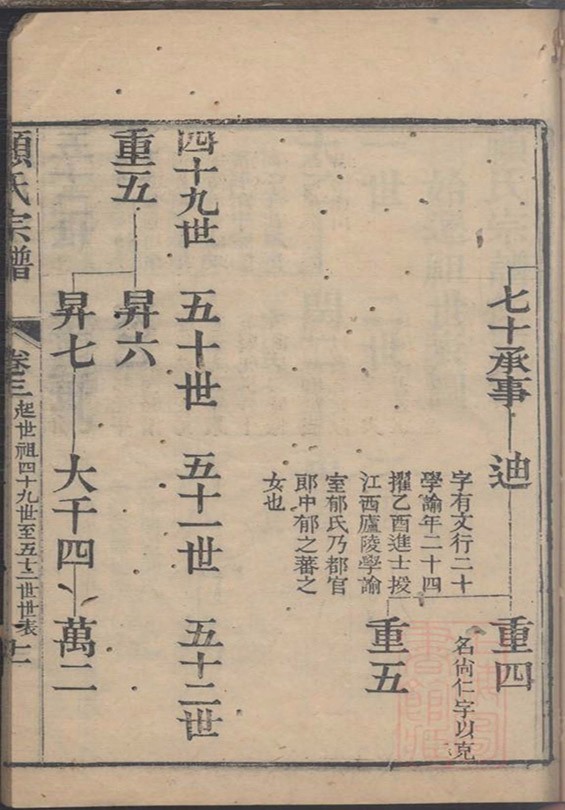 七十承事
迪
字有文行二十
學諭年二十四
擢乙酉進士授
江西廬陵學諭
室郁氏乃都官
郎中郁之蕃之
女也
重四
名尚仁字以克
重五
四十九世
五十世
五十一世
五十二世
重五
昇六
昇七
大千四
萬二
顧氏宗譜
卷三
起世祖四十九世至五十二世世表